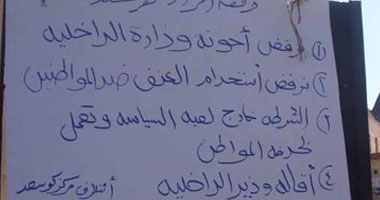 وقفة
١) نرفض أخونه وزارة الداخليه
٢) نرفض أستخدام العنف ضد المواطنين
٣) الشرطه خارج لعبه السياسه وتعمل
لخدمه المواطن
٤) أقاله وزير الداخليه
أئتلاف مركز كوم حمد